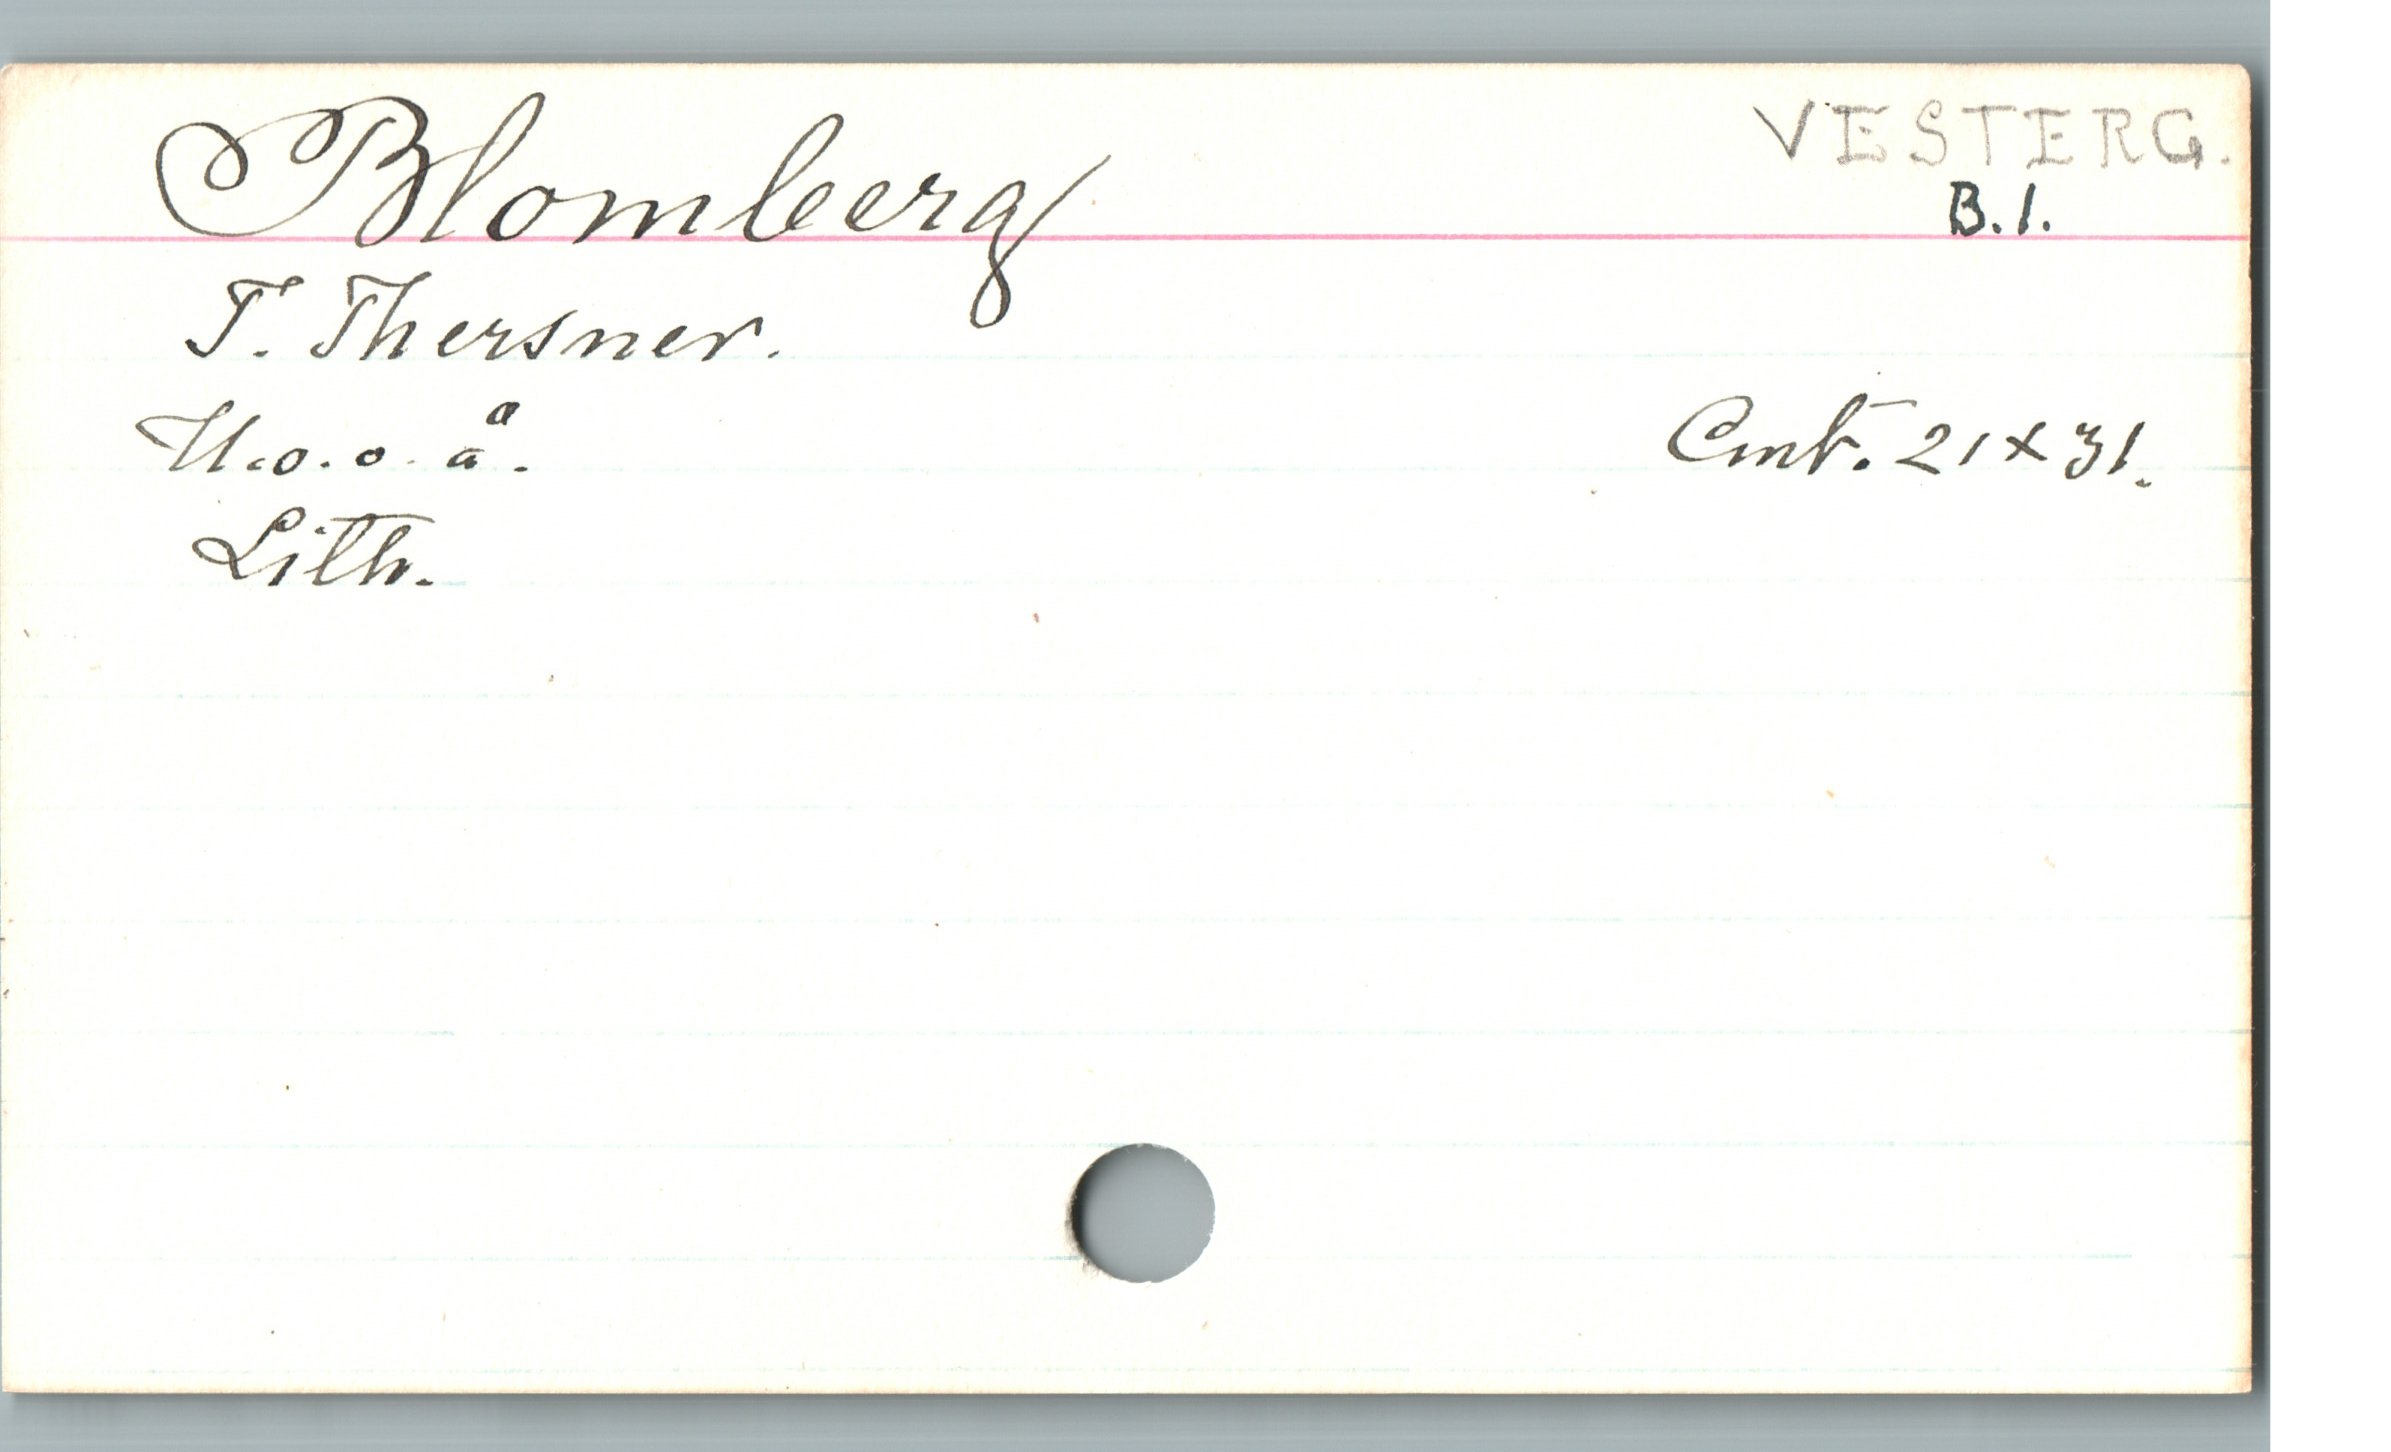 Blomberg
VESTERG.
B.1.
T. Thersner.
U.o.o.å.
Cmt. 21 x 31.
Lith.